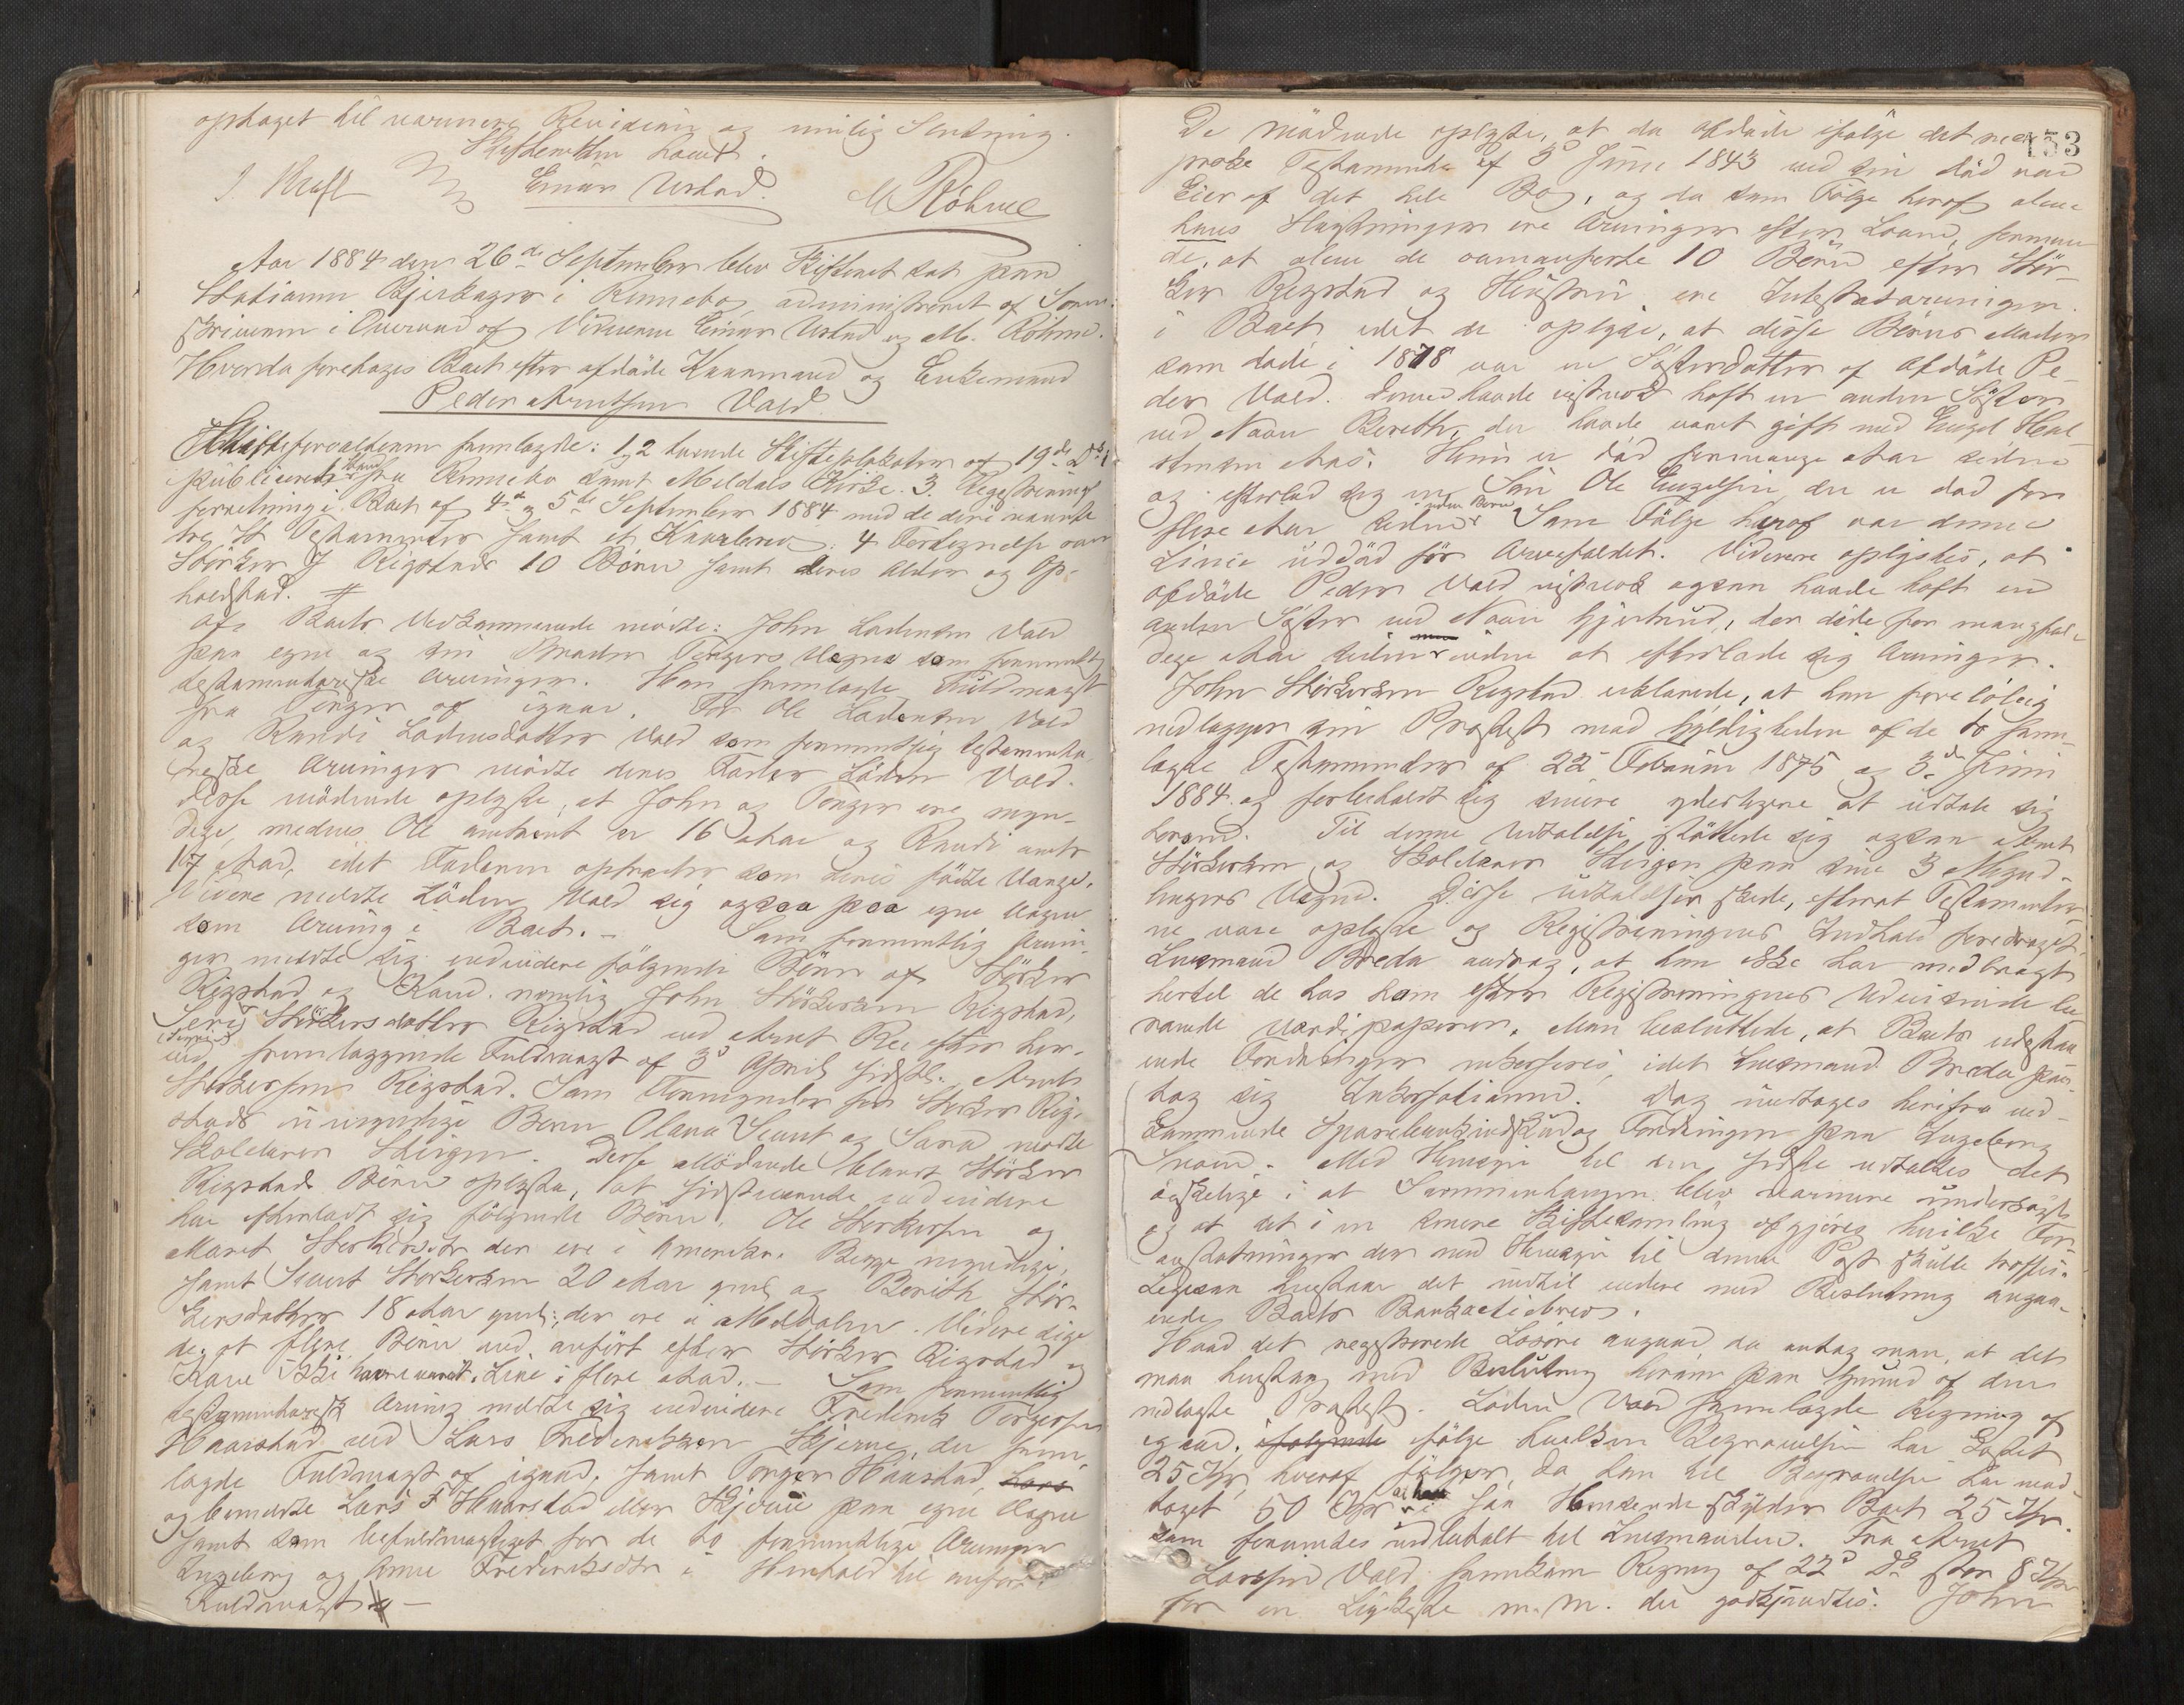 optaget til nærmere Revidering og mulig Slutning.
Skifteretten hævet.
J. Kraft Einar Urstad. M Röhme
Aar 1884 den 26de September blev Skifteret sat paa
Stationen Bjerkager i Rennebo, administreret af Soren-
skriveren i Overvær af Vidnerne Einar Urstad og M. Röhme.
Hvorda foretoges Boet efter afdöde Kaarmand og Enkemand
Peder Arntsen Vold
Skifteforvalteren fremlagde: 1, 2 tvende Skifteplakater af 19de Ds
publiceret fra Rennebo samt Meldals Kirke. 3. Registrerings
forretning i Boet af 4de og 5de September 1884 med de deri nævnte
tre Testamenter samt et Kaarbrev. 4 Fortegnelse over
Störker J Rigstads 10 Börn samt deres Alder og Op-
holdsted. #
Af Boets Vedkommende mödte: John Lodensen Vold
paa egne og sin Broder Torgers Vegne som formentlig
testamentariske Arvinger. Han fremlagde Fuldmagt
fra Torger af igaar. For Ole Lodensen Vold
og Randi Lodensdatter Vold som formentlig testamenta-
riske Arvinger mödte deres Fader Loden Vold.
Disse mödende oplyste, at John og Torger ere myn-
dige, medens Ole omtrent er 16 Aar og Randi omtr
17 Aar, idet Faderen optræder som deres födte Værge.
Videre meldte Loden Vold sig ogsaa paa egne Vegne
som Arving i Boet. – Som formentlig Arvin-
ger meldte sig endvidere fölgende Börn af Störker
Rigstad og Kone. nemlig John Störkersen Rigstad,
Seri Störkersdatter Rigstad ved Arnt Ree efter her-
ved fremlæggende Fuldmagt af 3d April sidstl. Arnt
Störkersen Rigstad. Som Formynder for Störker Rig-
stads umyndige Börn Olava Sivert og Sara mödte
Skolelærer Skeigen. Disse Mödende blandt Störker
Rigstads Börn oplyste, at sidstnævnte endvidere
har efterladt sig fölgende Börn. Ole Storkersen og
Maret Storkersdtr der ere i Amerika. Begge myndige,
samt Sivert Storkersen 20 Aar gml og Berith Stör-
kersdatter 18 Aar gml; der ere i Meldalen. Videre sige
de, at flere Börn end anfört efter Störker Rigstad og
Kone ikke have været i Live i flere Aar. – Som formentlig
testamentarisk Arving meldte sig endvidere Frederik Torgersen
Haarstad ved Lars Frederiksen Skjerve, der frem-
lagde Fuldmagt af igaar, samt Torger Haarstad,
og bemeldte Lars F Haarstad eller Skjerve paa egne Vegne
samt som befuldmægtiget for de to formentlige Arvinger
Ingeborg og Anne Frederiksdtr i Henhold til anförte
Fuldmagt –
153
De mödende oplyste, at da afdöde ifölge det med-
probe Testamente af 3d Juni 1843 ved sin död var
Eier af det hele Bo, og da som Fölge heraf alene
hans Slægtninger ere Arvinger efter Loven, formene
de, at alene de ovenanförte 10 Börn efter Stör-
ker Rigstad og Hustru ere Intestatarvinger
i Boet, idet de oplyse, at disse Börns Moder
som döde i 1878 var en Sösterdatter af Afdöde Pe-
der Vold. Denne havde vistnok haft en anden Söster
ved Navn Berethe, der havde været gift med Engel Hal-
stensen Aas. Hun er död for mange Aar siden
og efterlod sig en Sön Ole Engelsen der er död for
flere Aar siden uden Börn. Som Fölge heraf var denne
Linie uddöd för Arvefaldet. Videre oplystes, at
afdöde Peder Vold vistnok ogsaa havde haft en
anden Söster ved Navn Gjertrud, der döde for mangfol-
dige Aar siden uden at efterlade sig Arvinger.
John Störkersen Rigstad erklærede, at han foreløbig
nedlægger sin Protest mod Gyldigheden af de to frem-
lagte Testamenter af 22d Februar 1875 og 3d Juni
1884 og forbeholdt sig senere yderligere at udtale sig
herom. Til denne Udtalelse sluttede sig ogsaa Arnt
Störkersen og Skolelærer Skeigen paa sine 3 Mynd-
lingers Vegne. Disse Udtalelser skede, efterat Testamenter-
ne vare oplæste og Registreringens Indhold foredraget.
Lensmand Breda androg, at han ikke har medbragt
hertil de hos ham efter Registreringens Udvisende be-
roende Værdipapirer. Man besluttede, at Boets udestaa-
ende Fordringer inkasseres, idet Lensmand Breda paa-
tog sig Inkassationen. Dog undtages herifra ved-
kommende Sparebankindskud og Fordringen paa Ingeborg
Med Hensyn til den sidste udtaltes det
önskelige i at Sammenhængen blev nærmere undersögt
og at det i en senere Skiftesamling afgjöres hvilke For-
anstaltninger der med Hensyn til denne Post skulle træffes.
Ligesaa henstaar det indtil videre med Beslutning angaa-
ende Boets Bankactiebrev.
Hvad det registrerede Lösöre angaar, da antog man, at det
maa henstaa med Beslutning herom paa Grund af den
nedlagte Protest. Loden Vold fremlagde Regning af
igaar, ifölge hvilken Begravelsen har kostet
25 Kr, hvoraf fölger, da han til Begravelsen har mod-
taget 50 Kr at han saa Henseende skylder Boet 25 Kr.
som foreventes indbetalt til Lensmanden. Fra Arnt
Larsen Vold fremkom Regning af 22d Ds stor 8 Kr
for en Ligkiste m.m. der godkjendtes. John